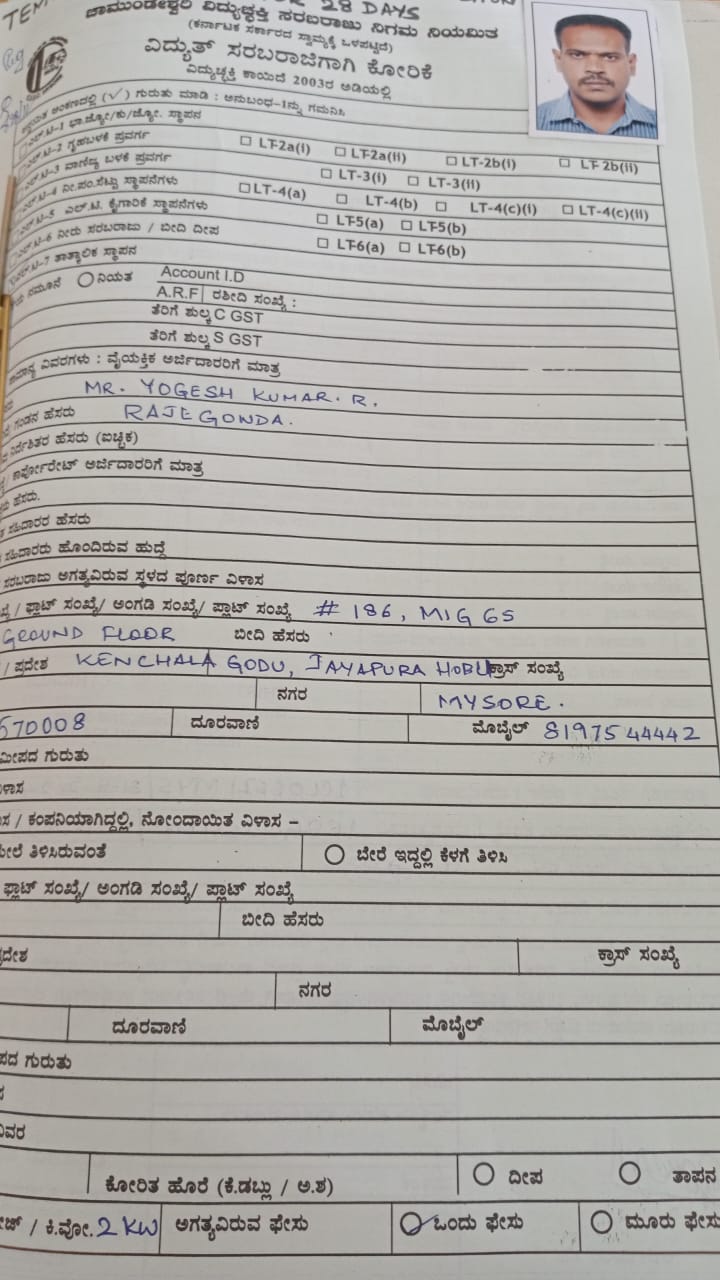 TEM
28 DAYS
ಚಾಮುಂಡೇಶ್ವರಿ ವಿದ್ಯುಚ್ಛಕ್ತಿ ಸರಬರಾಜು ನಿಗಮ ನಿಯಮಿತ
(ಕರ್ನಾಟಕ ಸರ್ಕಾರದ ಸ್ವಾಮ್ಯಕ್ಕೆ ಒಳಪಟ್ಟಿದೆ)
ವಿದ್ಯುತ್ ಸರಬರಾಜಿಗಾಗಿ ಕೋರಿಕೆ
ವಿದ್ಯುಚ್ಛಕ್ತಿ ಕಾಯಿದೆ 2003ರ ಅಡಿಯಲ್ಲಿ
ಅಂಕಣದಲ್ಲಿ (✓) ಗುರುತು ಮಾಡಿ : ಅನುಬಂಧ-1ನ್ನು ಗಮನಿಸಿ
ಎಲ್.ಟಿ-1 ಭಾ.ಜ್ಯೋ/ಕು/ಜ್ಯೋ. ಸ್ಥಾಪನ
ಎಲ್.ಟಿ-2 ಗೃಹಬಳಕೆ ಪ್ರವರ್ಗ □ LT-2a(i) □ LT-2a(ii) □ LT-2b(i) □ LT-2b(ii)
ಎಲ್.ಟಿ-3 ವಾಣಿಜ್ಯ ಬಳಕೆ ಪ್ರವರ್ಗ □ LT-3(i) □ LT-3(ii)
ಎಲ್.ಟಿ-4 ನೀ.ಪಂ.ಸೆಟ್ಟು ಸ್ಥಾಪನೆಗಳು □ LT-4(a) □ LT-4(b) □ LT-4(c)(i) □ LT-4(c)(ii)
ಎಲ್.ಟಿ-5 ಎಲ್.ಟಿ. ಕೈಗಾರಿಕೆ ಸ್ಥಾಪನೆಗಳು □ LT-5(a) □ LT-5(b)
ಎಲ್.ಟಿ-6 ನೀರು ಸರಬರಾಜು / ಬೀದಿ ದೀಪ □ LT-6(a) □ LT-6(b)
ಎಲ್.ಟಿ-7 ತಾತ್ಕಾಲಿಕ ಸ್ಥಾಪನ
ನಮೂನೆ ○ ನಿಯತ Account I.D
A.R.F ರಶೀದಿ ಸಂಖ್ಯೆ :
ತೆರಿಗೆ ಶುಲ್ಕ C GST
ತೆರಿಗೆ ಶುಲ್ಕ S GST
ವಿವರಗಳು : ವೈಯಕ್ತಿಕ ಅರ್ಜಿದಾರರಿಗೆ ಮಾತ್ರ
MR. YOGESH KUMAR. R.
ಗಂಡನ ಹೆಸರು RAJEGONDA.
ನಿರ್ದೇಶಿತರ ಹೆಸರು (ಐಚ್ಛಿಕ)
ಕಾರ್ಪೋರೇಟ್ ಅರ್ಜಿದಾರರಿಗೆ ಮಾತ್ರ
ಹೆಸರು.
ಸಹಿದಾರರ ಹೆಸರು
ಸಹಿದಾರರು ಹೊಂದಿರುವ ಹುದ್ದೆ
ಸರಬರಾಜು ಅಗತ್ಯವಿರುವ ಸ್ಥಳದ ಪೂರ್ಣ ವಿಳಾಸ
/ ಫ್ಲಾಟ್ ಸಂಖ್ಯೆ/ ಅಂಗಡಿ ಸಂಖ್ಯೆ/ ಪ್ಲಾಟ್ ಸಂಖ್ಯೆ # 186, MIG 65
GROUND FLOOR ಬೀದಿ ಹೆಸರು
/ ಪ್ರದೇಶ KENCHALA GODU, JAYAPURA HOBLI ಕ್ರಾಸ್ ಸಂಖ್ಯೆ
ನಗರ MYSORE.
570008 ದೂರವಾಣಿ ಮೊಬೈಲ್ 8197544442
ಮೀಪದ ಗುರುತು
ಳಾಸ
/ ಕಂಪನಿಯಾಗಿದ್ದಲ್ಲಿ, ನೋಂದಾಯಿತ ವಿಳಾಸ –
ಮೇಲೆ ತಿಳಿಸಿರುವಂತೆ ○ ಬೇರೆ ಇದ್ದಲ್ಲಿ ಕೆಳಗೆ ತಿಳಿಸಿ
ಫ್ಲಾಟ್ ಸಂಖ್ಯೆ/ ಅಂಗಡಿ ಸಂಖ್ಯೆ/ ಪ್ಲಾಟ್ ಸಂಖ್ಯೆ
ಬೀದಿ ಹೆಸರು
ದೇಶ ಕ್ರಾಸ್ ಸಂಖ್ಯೆ
ನಗರ
ದೂರವಾಣಿ ಮೊಬೈಲ್
ಪದ ಗುರುತು
ವರ
ಕೋರಿತ ಹೊರೆ (ಕೆ.ಡಬ್ಲು / ಅ.ಶ) ○ ದೀಪ ○ ತಾಪನ
/ ಕಿ.ವೋ. 2 KW ಅಗತ್ಯವಿರುವ ಫೇಸು ○ ಒಂದು ಫೇಸು ○ ಮೂರು ಫೇಸು